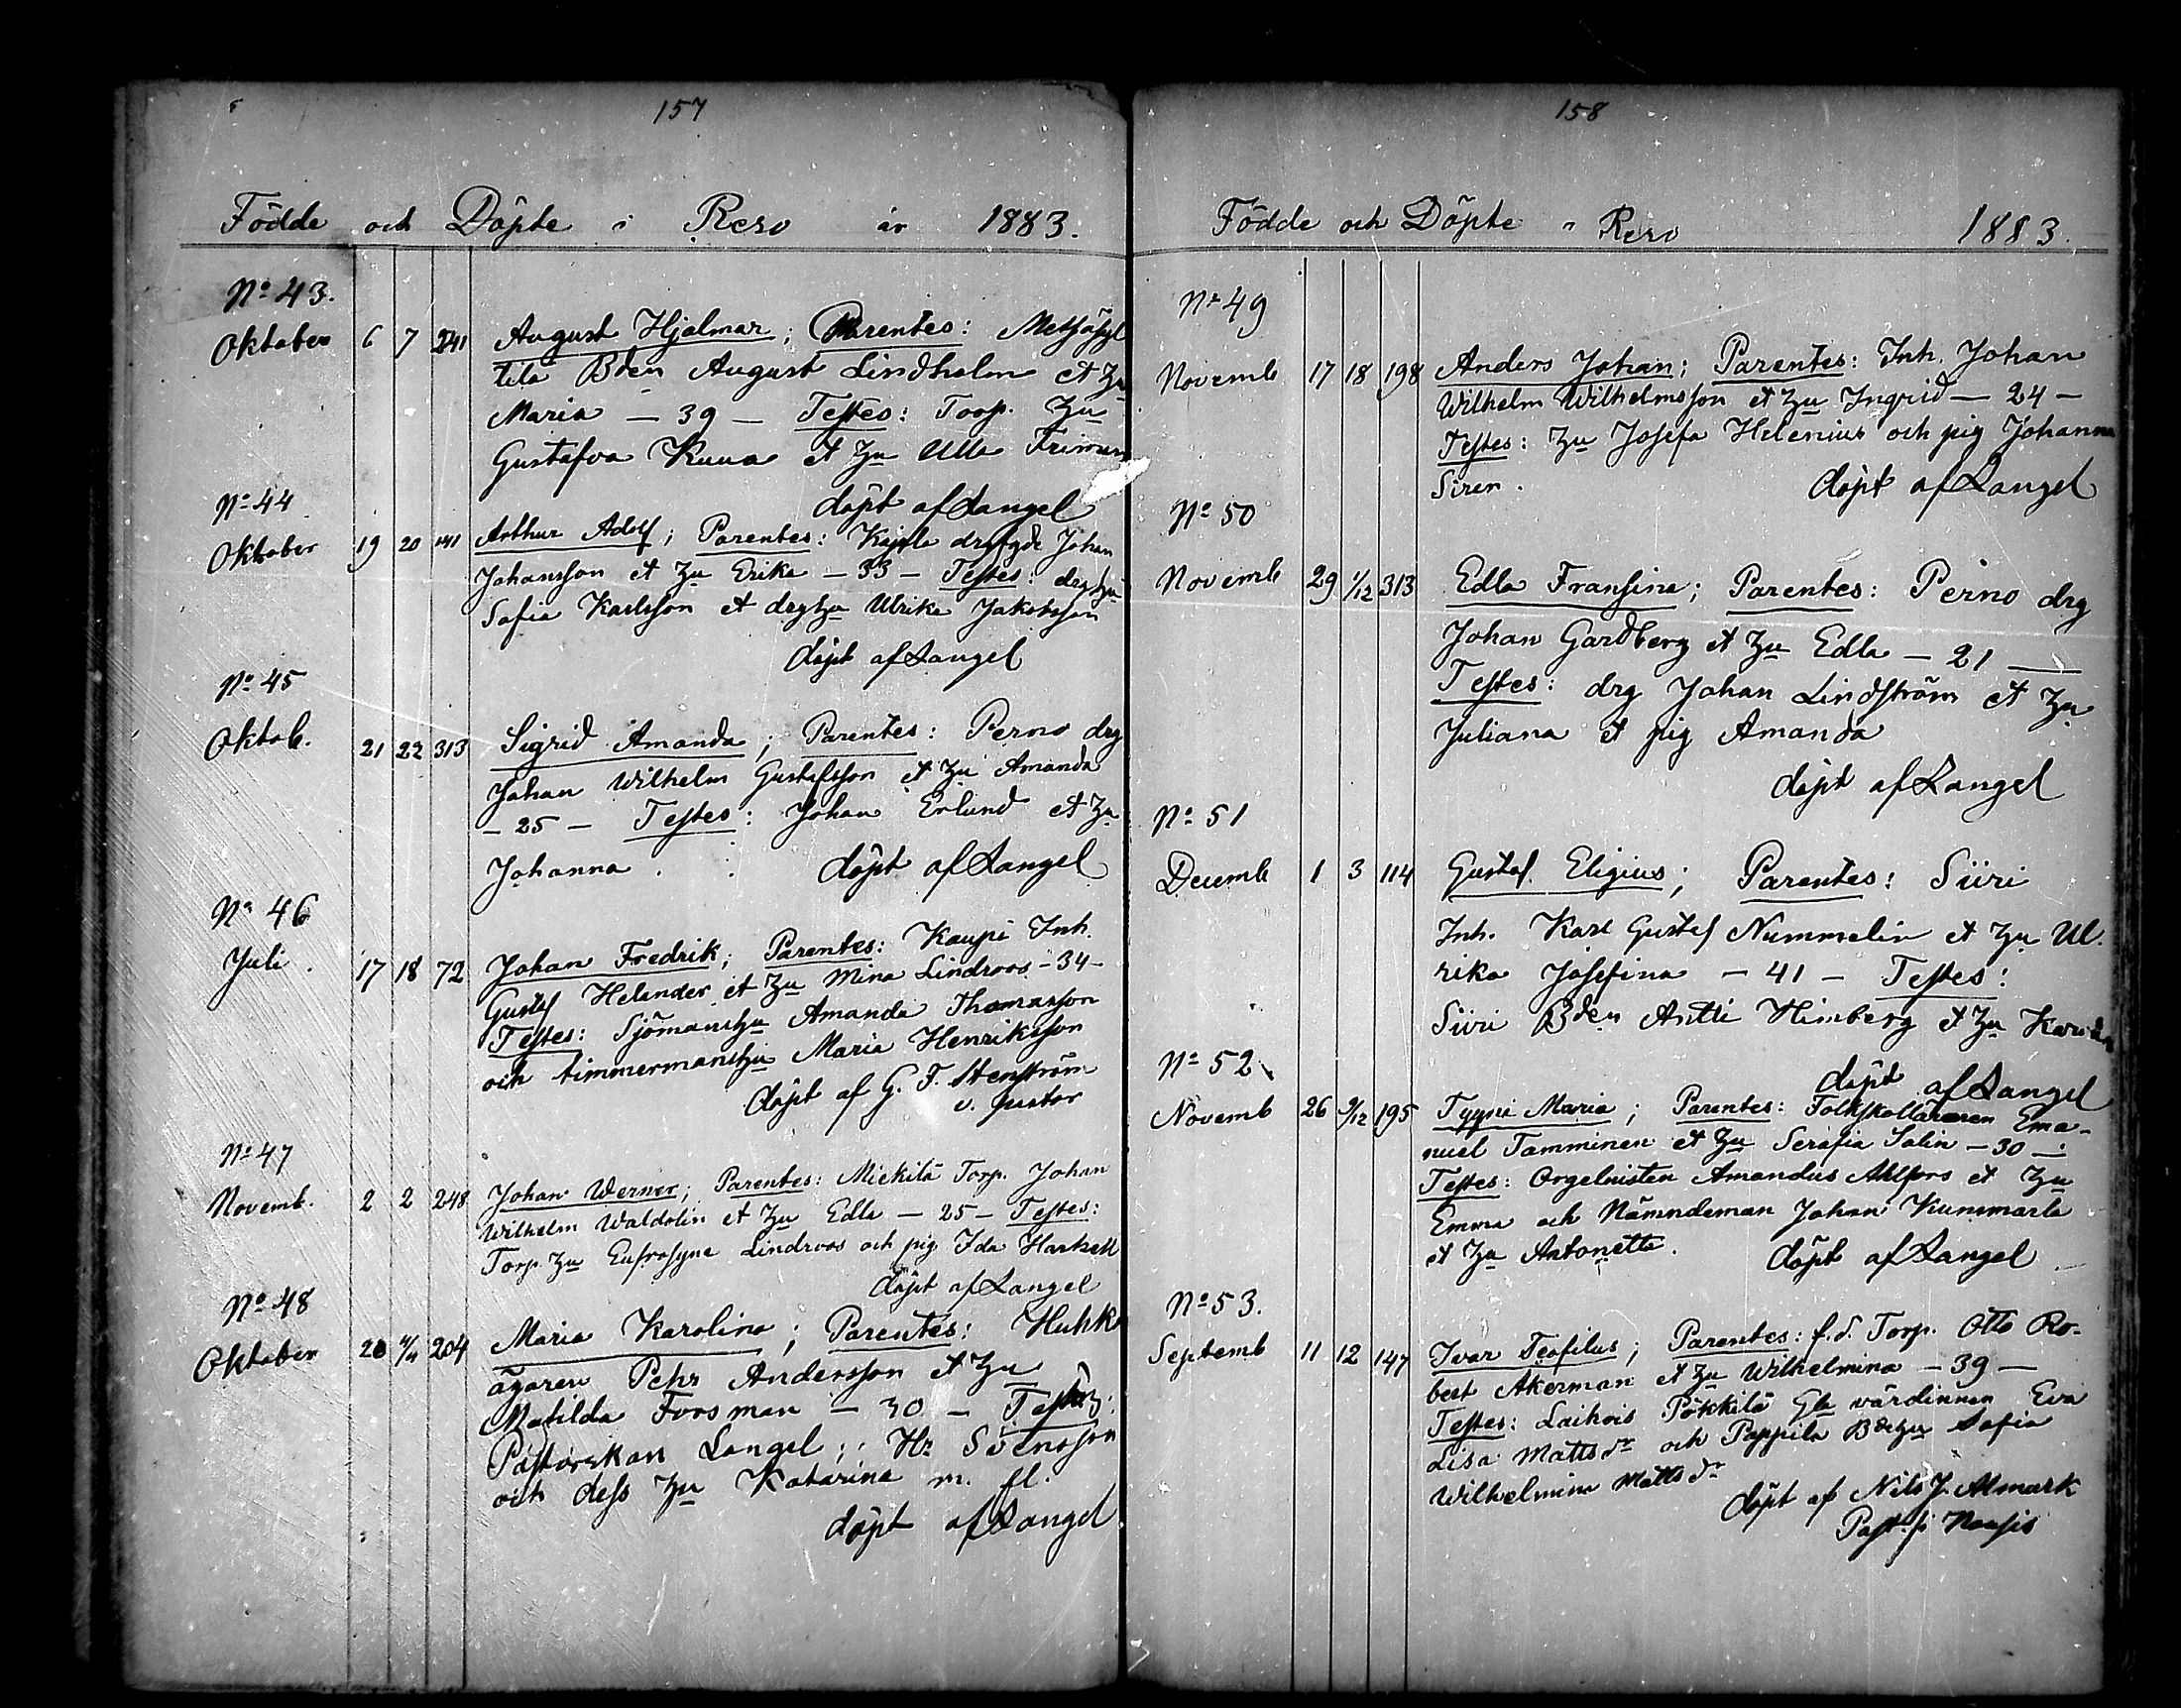 157
Födde och Döpte i Reso år 1883.
No 43.
Oktober 6 7 241 August Hjalmar; Parentes: Metsäkyl
tilä Bden August Lindholm et Hu
Maria — 39 — Testes: Torp. Hu
Gustafva Kuua et Hu Ulla Friman
döpt af Langel
No 44
Oktober 19 20 141 Arthur Adolf; Parentes: Kaijala drgfgde Johan
Johansson et Hu Erika — 33 — Testes: drghu
Sofia Karlsson et drghu Ulrika Jakobsson
döpt af Langel
No 45
Oktob. 21 22 313 Sigrid Amanda; Parentes: Perno drg
Johan Wilhelm Gustafsson et Hu Amanda
— 25 — Testes: Johan Erlund et Hu
Johanna. döpt af Langel
No 46
Juli. 17 18 72 Johan Fredrik; Parentes: Kaupi Inh.
Gustaf Helander et Hu Mina Lindroos — 34 —
Testes: Sjömanshu Amanda Thomasson
och timmermanshu Maria Henriksson
döpt af G. F. Stenström
v. pastor
No 47
Novemb. 2 2 248 Johan Werner; Parentes: Mickilä Torp. Johan
Wilhelm Waldolin et Hu Edla — 25 — Testes:
Torp. Hu Eufrosyne Lindroos och pig Ida
döpt af Langel
No 48
Oktober 20 4/11 204 Maria Karolina; Parentes: Huhko
ägaren Pehr Andersson et Hu
Matilda Forsman — 30 — Testes:
Pastorskan Langel; Hr Svensson
och dess Hu Katarina m. fl.
döpt af Langel
158
Födde och Döpte i Reso 1883.
No 49
Novemb 17 18 198 Anders Johan; Parentes: Inh. Johan
Wilhelm Wilhelmsson et Hu Ingrid — 24 —
Testes: Hu Josefa Helenius och pig Johanna
Siren. döpt af Langel
No 50
Novemb 29 1/12 313 Edla Fransina; Parentes: Perno drg
Johan Gardberg et Hu Edla — 21 —
Testes: drg Johan Lindström et Hu
Juliana et pig Amanda
döpt af Langel
No 51
Decemb 1 3 114 Gustaf Eligius; Parentes: Siiri
Inh. Karl Gustaf Nummelin et Hu Ul.
rika Josefina — 41 — Testes:
Siiri Bden Antti Himberg et Hu Karolin
döpt af Langel
No 52
Novemb 26 9/12 195 Tyyni Maria; Parentes: Folkskolläraren Ema-
nuel Tamminen et Hu Serafia Salin — 30 —
Testes: Orgelnisten Amandus Ahlfors et Hu
Emma och Nämndeman Johan Kunnmarla
et Hu Antonetta. döpt af Langel
No 53.
Septemb 11 12 147 Ivar Teofilus; Parentes: f.d. Torp. Otto Ro-
bert Akerman et Hu Wilhelmina — 39 —
Testes: Laihois Pökkilä Gla värdinnan Eva
Lisa Mattsdr och Pappila Bdehu Sofia
Wilhelmina Mattsdr
döpt af Nils J. Almark
Past. i Nousis